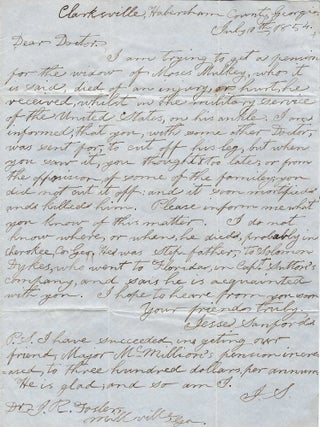 Clarksville, Habersham County, Georgia
July 10th, 1854.
Dear Doctor,
I am trying to get a pension
for the widow of Moses Walkey, who it
is said, died of an injury, or hurt, he
received, whilst in the military service
of the United States, on his ankle. I am
informed, that you, with some other Doctor,
was sent for, to cut off his leg, but when
you saw it, you thought too late, or from
the opposition of some of the family, you
did not cut it off: and it soon mortified
and killed him. Please inform me what
you know of this matter. I do not
know where, or when, he died, probably in
Cherokee, Co Geo. He was step father, to Solomon
Sykes, who went to Florida, in Capt.
company, and says he is acquainted
with you. I hope to hear from you soon
Your friend truly.
Jesse Sanford
P.S. I have succeeded in getting our
friend, Major McMillion's pension incre-
ased, to three hundred dollars, per annum
He is glad, and so am I.
J. S.
Dr. J. R. Foster,